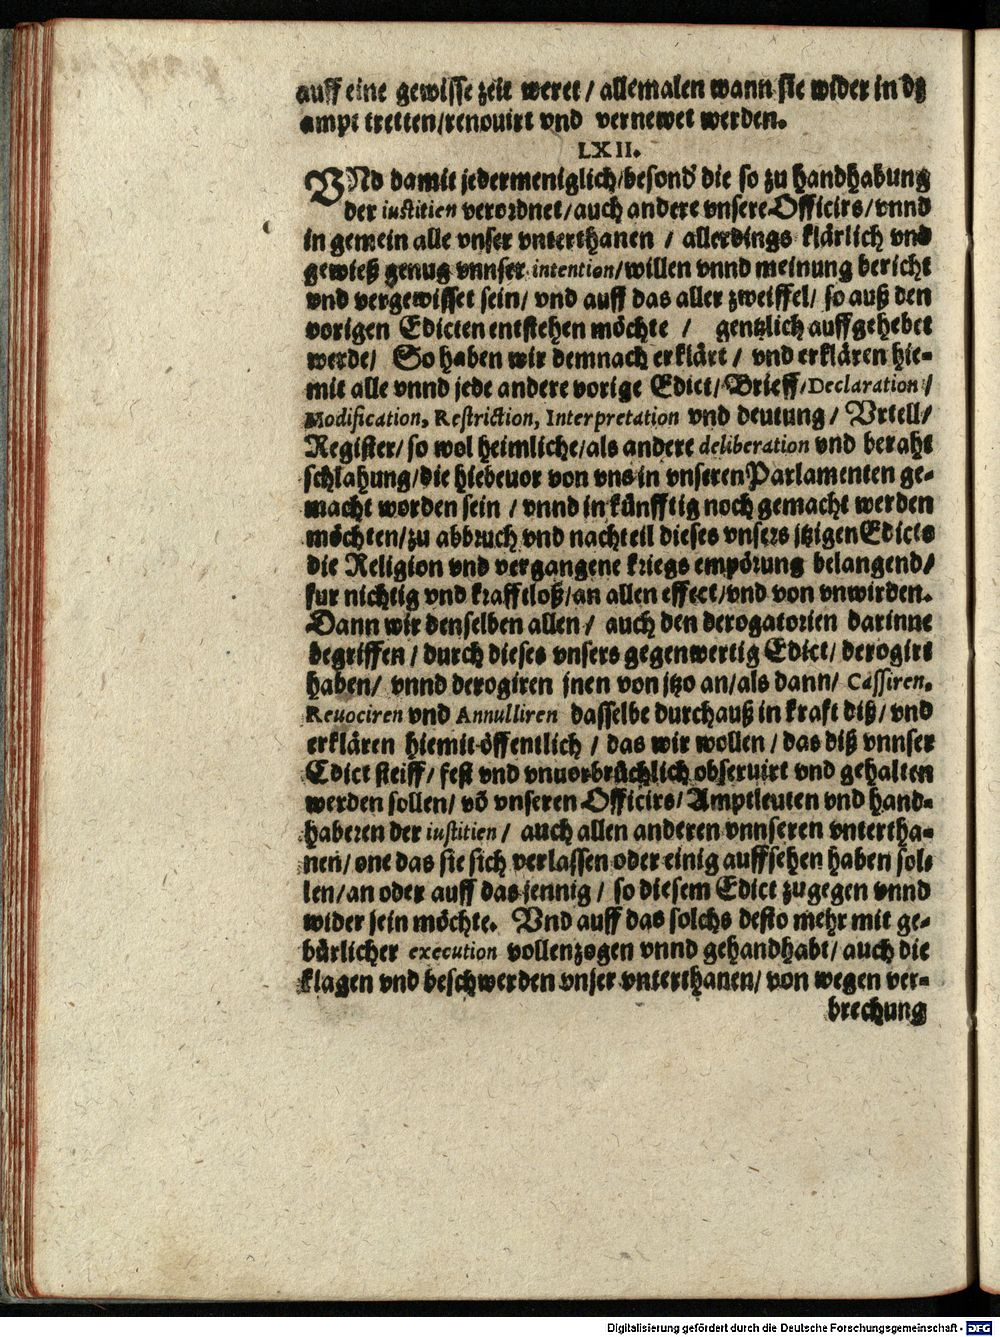 auff eine gewisse zeit weret / allemalen wann sie wider in dz
ampt tretten/renouirt vnd vernewet werden.
LXII.
VNd damit jedermeniglich/besond' die so zu handhabung
der iustitien verordnet/auch andere vnsere Officirs/vnnd
in gemein alle vnser vnterthanen / allerdings klärlich vnd
gewieß genug vnnser intention/willen vnnd meinung bericht
vnd vergewisset sein/ vnd auff das aller zweiffel/ so auß den
vorigen Edicten entstehen möchte / gentzlich auffgehebet
werde/ So haben wir demnach erklärt / vnd erklären hie-
mit alle vnnd jede andere vorige Edict/Brieff/Declaration/
Modification, Restriction, Interpretation vnd deutung/ Vrteil/
Register/ so wol heimliche/als andere deliberation vnd beraht
schlahung/die hiebeuor von vns in vnseren Parlamenten ge-
macht worden sein / vnnd in künfftig noch gemacht werden
möchten/zu abbruch vnd nachteil dieses vnsers jtzigen Edicts
die Religion vnd vergangene kriegs empörung belangend/
fur nichtig vnd krafftloß/an allen effect/vnd von vnwirden.
Dann wir denselben allen/ auch den derogatorien darinne
begriffen / durch dieses vnsers gegenwertig Edict/ derogirt
haben/ vnnd derogiren jnen von jtzo an/als dann/ Cassiren,
Reuociren vnd Annulliren dasselbe durchauß in kraft diß/ vnd
erklären hiemit öffentlich / das wir wollen / das diß vnnser
Edict steiff/ fest vnd vnuorbrüchlich obseruirt vnd gehalten
werden sollen/ vō vnseren Officirs/ Amptleuten vnd hand-
haberen der iustitien / auch allen anderen vnnseren vntertha-
nen/ one das sie sich verlassen oder einig auffsehen haben sol-
len/an oder auff das jennig / so diesem Edict zugegen vnnd
wider sein möchte. Vnd auff das solchs desto mehr mit ge-
bürlicher execution vollenzogen vnnd gehandhabt/ auch die
klagen vnd beschwerden vnser vnterthanen/ von wegen ver-
brechung
Digitalisierung gefördert durch die Deutsche Forschungsgemeinschaft - DFG